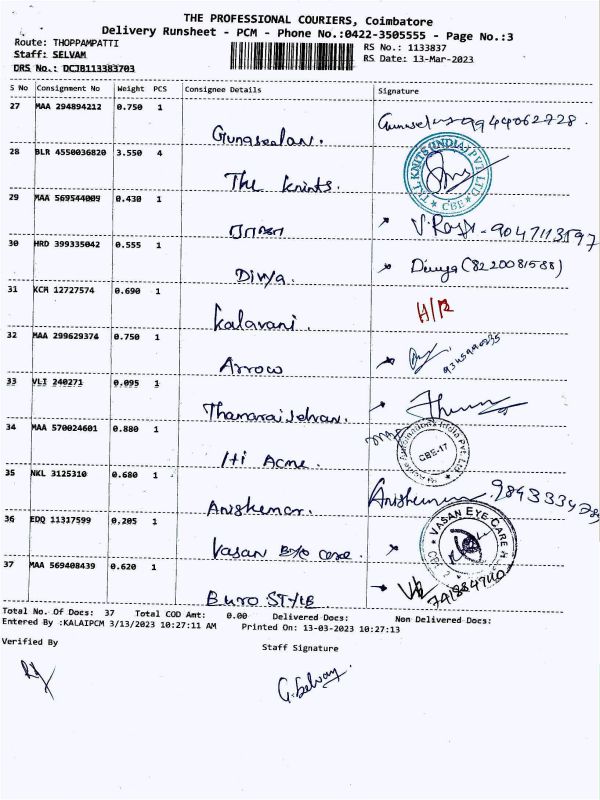 THE PROFESSIONAL COURIERS, Coimbatore
Delivery Runsheet - PCM - Phone No.:0422-3505555 - Page No.:3
Route: THOPPAMPATTI
RS No.: 1133837
Staff: SELVAM
RS Date: 13-Mar-2023
DRS No.: DCJB113383703
S No Consignment No Weight PCS Consignee Details Signature
27 MAA 294894212 0.750 1 Gunaseelan. 9944062728.
28 BLR 4550036820 3.550 4 The knints. T.K.L KNITS (INDIA) PVT LTD CBE
29 MAA 569544009 0.430 1 V. Raj - 9047113597
30 HRD 399335042 0.555 1 Divya. Divya (8220081588)
31 KCM 12727574 0.690 1 Kalavani. H/R
32 MAA 299629374 0.750 1 Arrow
33 VLI 240271 0.095 1 Thamaraiselvan.
34 MAA 570024601 0.880 1 Hi Acme. CBE-17
35 NKL 3125310 0.680 1
36 EDQ 11317599 0.205 1 Vasan eye care. VASAN EYE CARE H CBE 2
37 MAA 569408439 0.620 1 Euro STYLE
Total No. Of Docs: 37 Total COD Amt: 0.00 Delivered Docs: Non Delivered Docs:
Entered By :KALAIPCM 3/13/2023 10:27:11 AM Printed On: 13-03-2023 10:27:13
Verified By
Staff Signature
G. Selvam.